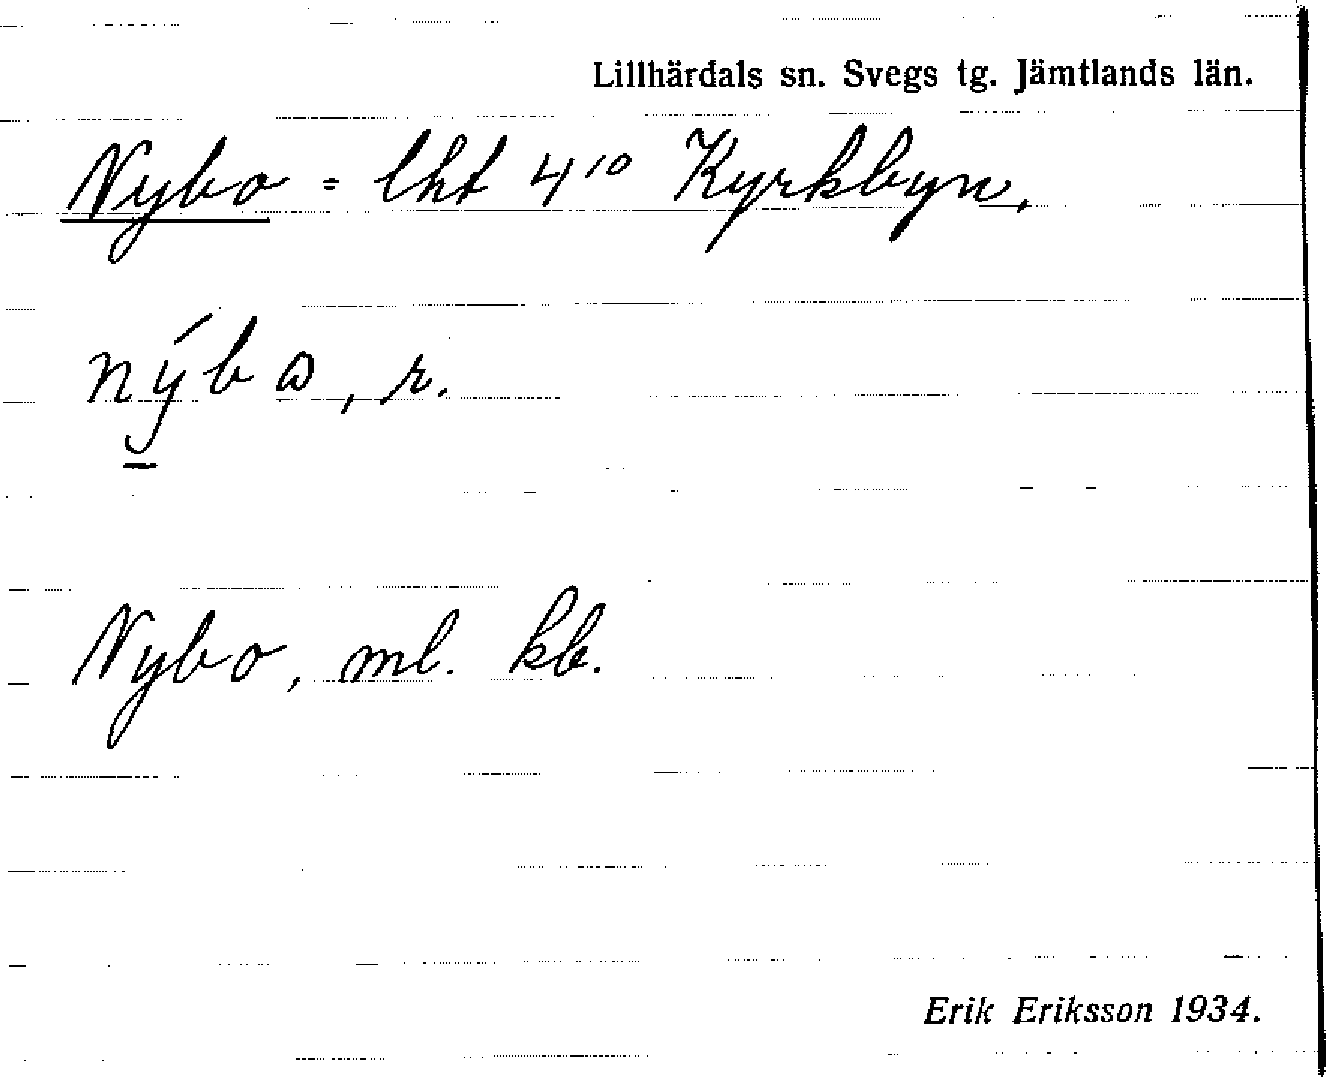 Lillhärdals sn. Svegs tg. Jämtlands län.
Nybo = lht 4¹⁰ Kyrkbyn,
nýbɷ, r.
Nybo, ml. kb.
Erik Eriksson 1934.